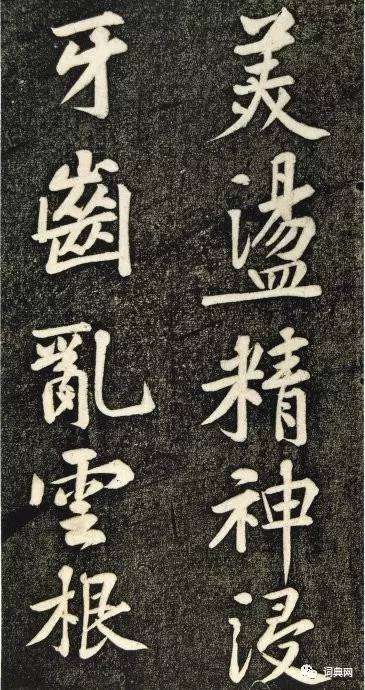 美盪精神浸
牙齒亂雲根
词典网